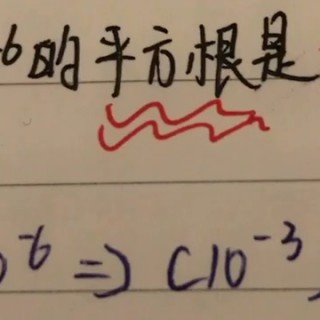 6的平方根是
-6 => (10^-3